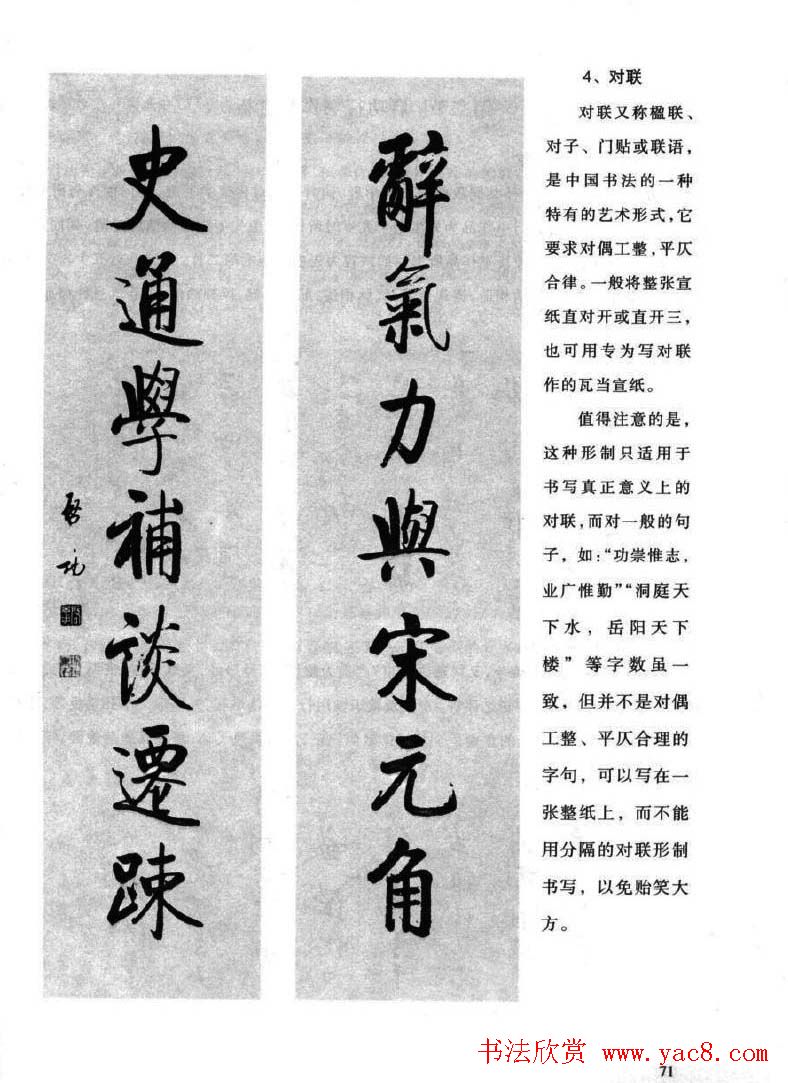 辭氣力與宋元角
史通學補談遷踈
啓功
4、对联
对联又称楹联、
对子、门贴或联语，
是中国书法的一种
特有的艺术形式，它
要求对偶工整，平仄
合律。一般将整张宣
纸直对开或直开三，
也可用专为写对联
作的瓦当宣纸。
值得注意的是，
这种形制只适用于
书写真正意义上的
对联，而对一般的句
子，如：“功崇惟志，
业广惟勤”“洞庭天
下水，岳阳天下
楼”等字数虽一
致，但并不是对偶
工整、平仄合理的
字句，可以写在一
张整纸上，而不能
用分隔的对联形制
书写，以免贻笑大
方。
书法欣赏 www.yac8.com
71